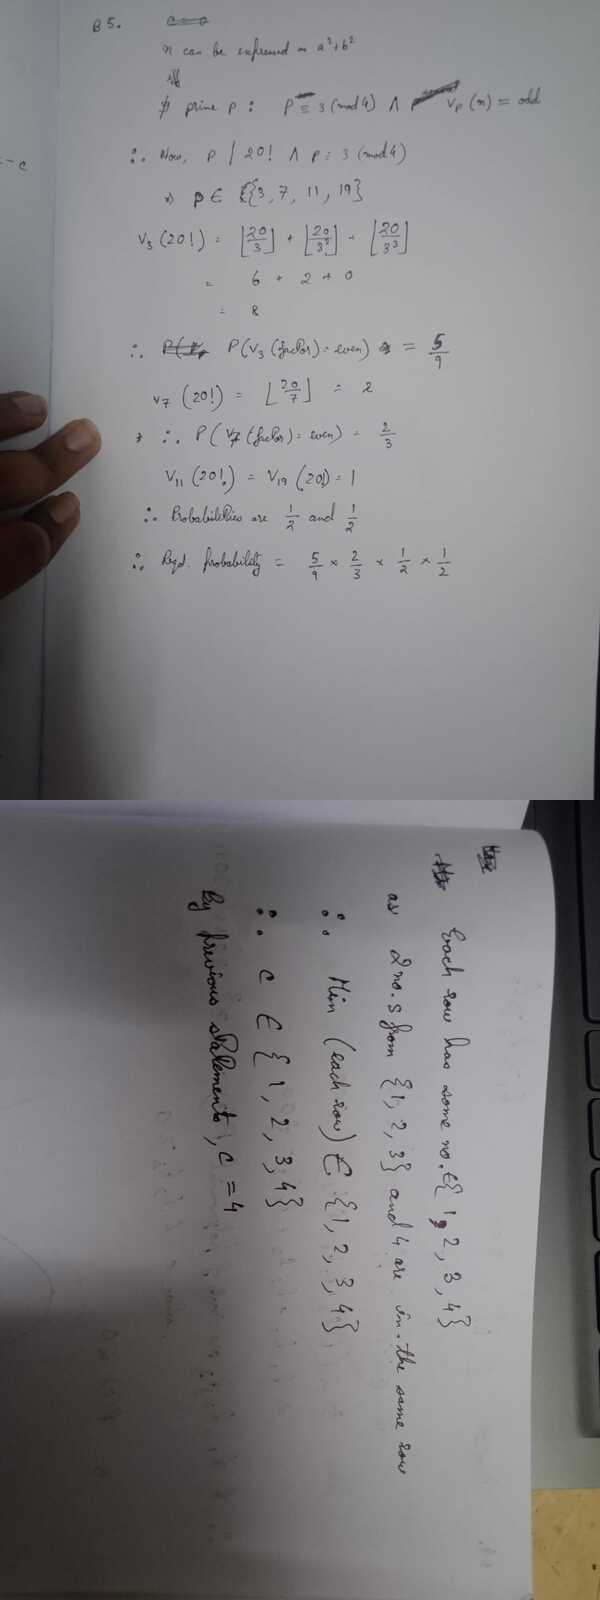 -c
B5.
n can be expressed as a²+b²
iff
∄ prime p : p ≡ 3 (mod 4) ∧ Vp (n) = odd
∴ Now, p | 20! ∧ p ≡ 3 (mod 4)
⇒ p ∈ {3, 7, 11, 19}
V3 (20!) = ⌊20/3⌋ + ⌊20/3²⌋ + ⌊20/3³⌋
= 6 + 2 + 0
= 8
∴ P (V3 (factor) = even) = 5/9
V7 (20!) = ⌊20/7⌋ = 2
∴ P (V7 (factor) = even) = 2/3
V11 (20!) = V19 (20!) = 1
∴ Probabilities are 1/2 and 1/2
∴ Reqd. probability = 5/9 × 2/3 × 1/2 × 1/2
Each row has some no. ∈ {1, 2, 3, 4}
as 2 no.s from {1, 2, 3} and 4 are in the same row
∴ Min (each row) ∈ {1, 2, 3, 4}
∴ c ∈ {1, 2, 3, 4}
By previous statements, c = 4